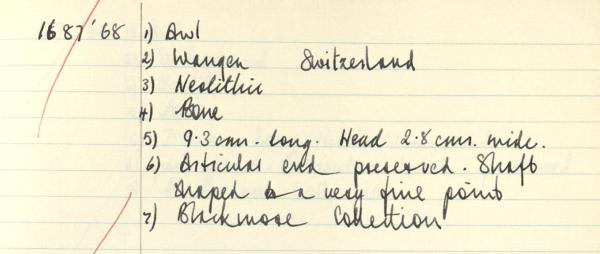 1687'68 1) Awl
2) Wangen Switzerland
3) Neolithic
4) Bone
5) 9.3 cms. long. Head 2.8 cms. wide.
6) Articular end preserved. Shaft
shaped to a very fine point
7) Blackmore Collection